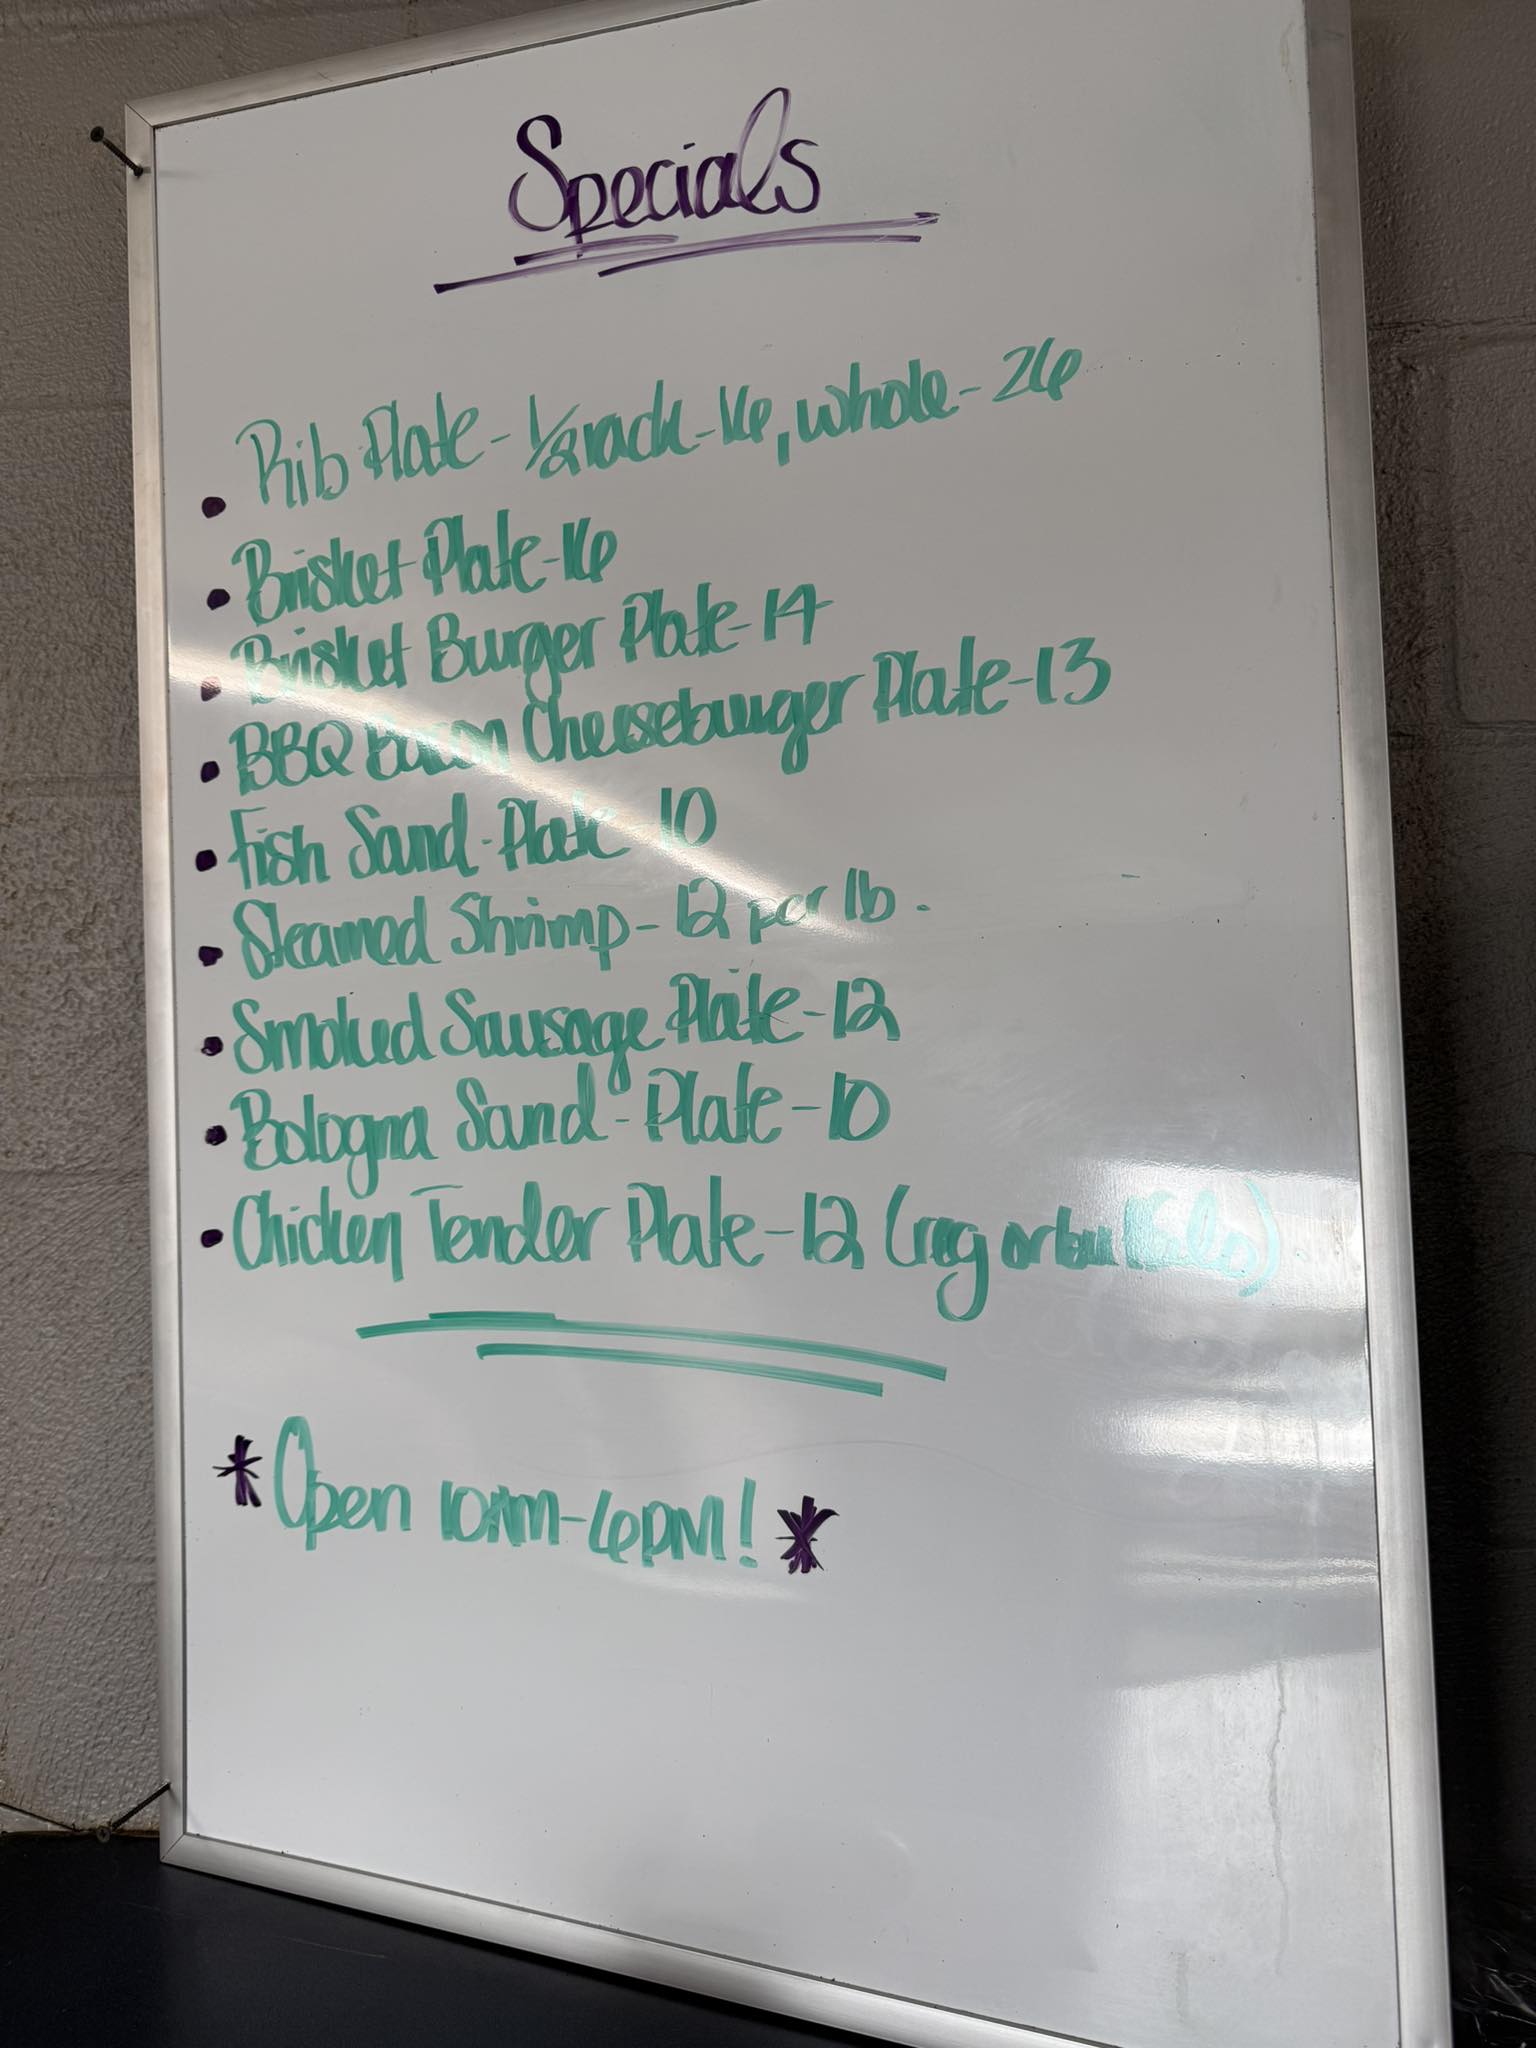 Specials
• Rib Plate - 1/2 rack - 16, whole - 26
• Brisket Plate - 16
• Brisket Burger Plate - 14
• BBQ Bacon Cheeseburger Plate - 13
• Fish Sand - Plate - 10
• Steamed Shrimp - 12 per lb.
• Smoked Sausage Plate - 12
• Bologna Sand - Plate - 10
• Chicken Tender Plate - 12 (reg or buffalo)
* Open 10AM - 6PM! *